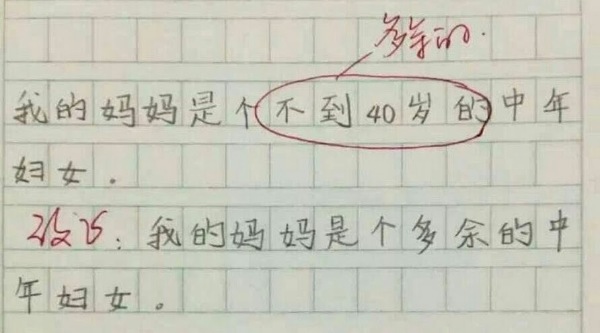 多余的.
我的妈妈是个不到40岁的中年
妇女.
改正:我的妈妈是个多余的中
年妇女。